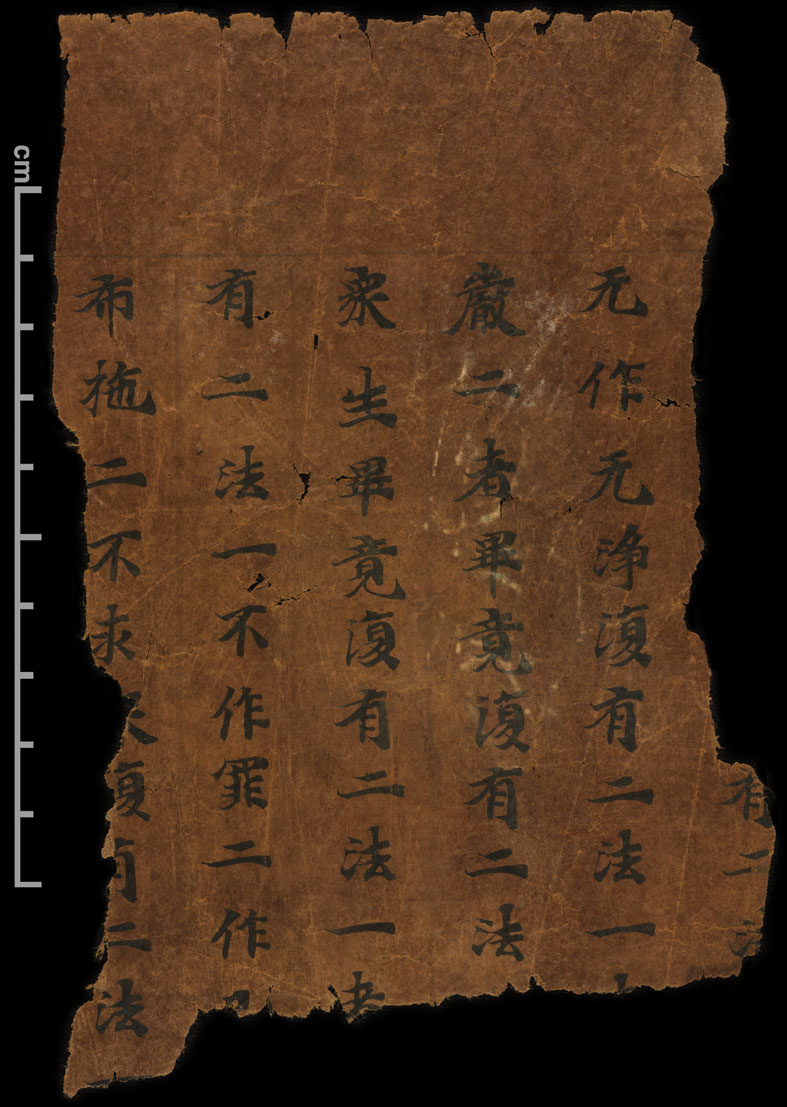 有二法
无作无浄復有二法一
嚴二者畢竟復有二法
衆生畢竟復有二法一
有二法一不作罪二作
布施二不求復有二法